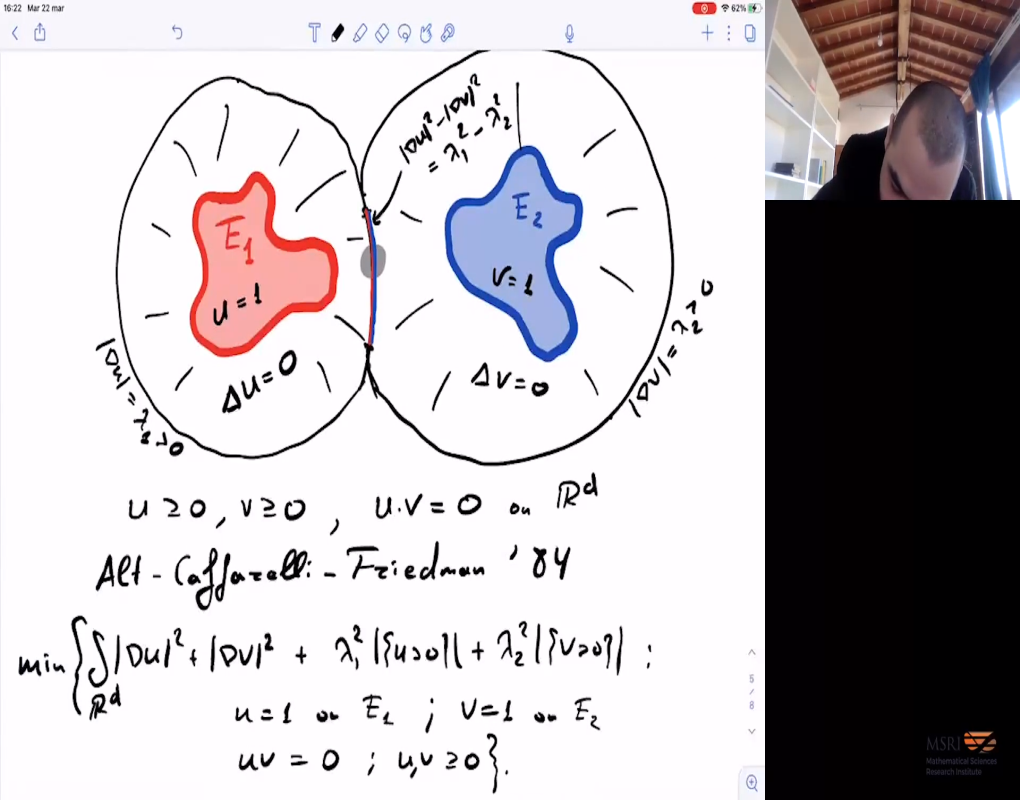 16:22 Mar 22 mar
62%
|∇u|²-|∇v|²
= λ₁² - λ₂²
E₁
u=1
E₂
v=1
Δu=0
Δv=0
|∇v| = λ₂>0
u ≥ 0, v ≥ 0, u.v = 0 on ℝᵈ
Alt - Caffarelli - Friedman '84
min { ∫ |∇u|² + |∇v|² + λ₁² |{u>0}| + λ₂² |{v>0}| :
ℝᵈ
u=1 on E₁ ; v=1 on E₂
uv = 0 ; u,v ≥ 0 }.
5
/
8
MSRI
Mathematical Sciences
Research Institute